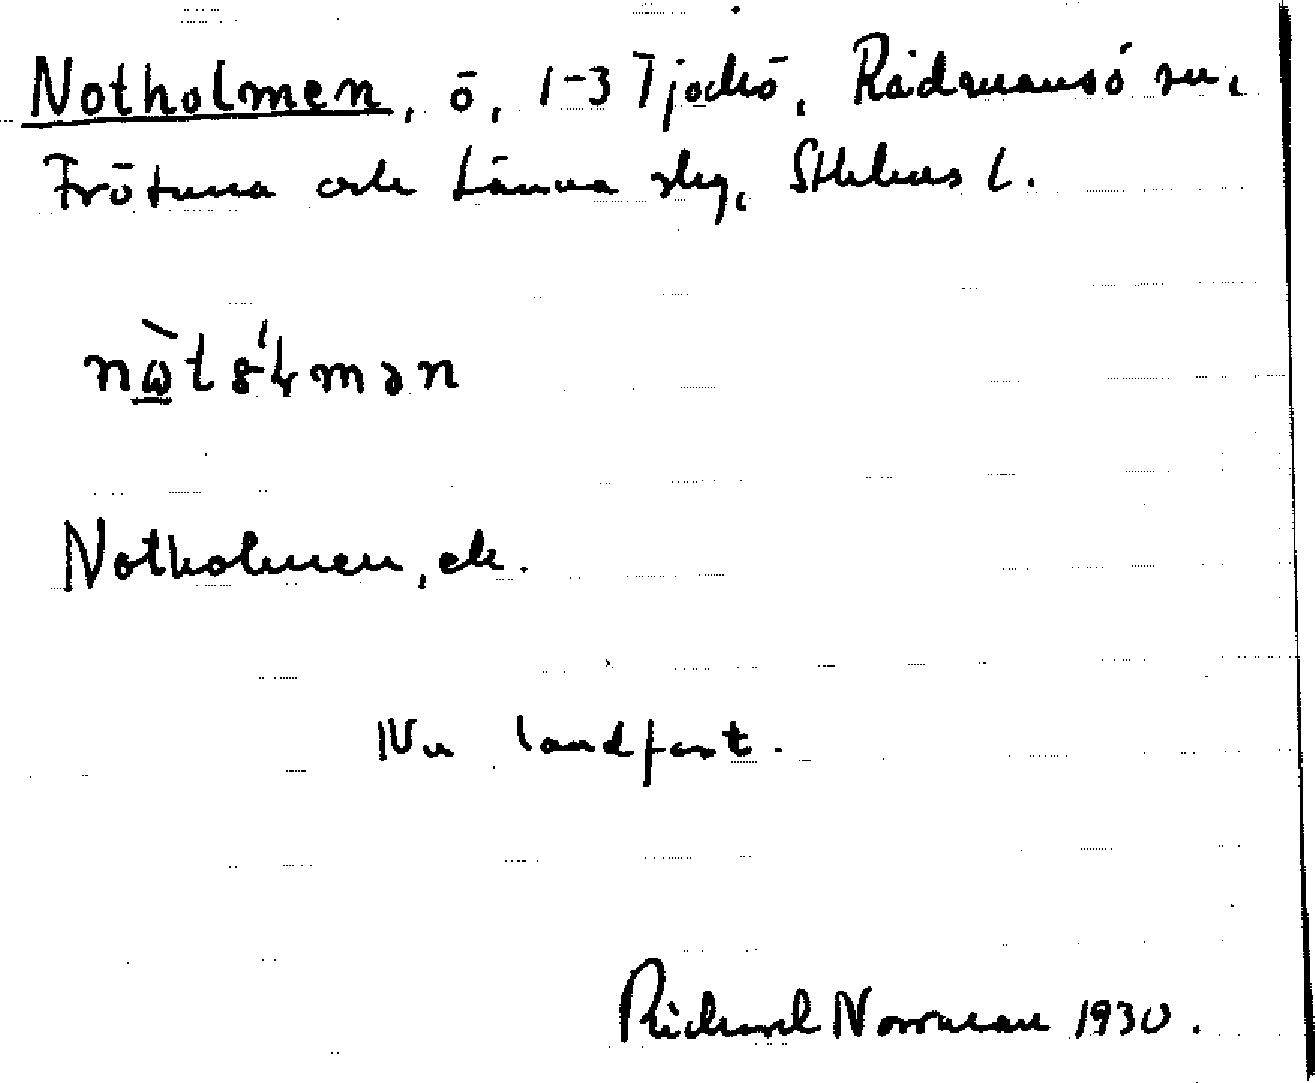 Notholmen, ö, 1-3 Tjockö, Rådmansö sn,
Frötuna och Länna skg, Sthlms l.
Notholmen, ek.
Nu landfast.
Richard Norrman 1930.